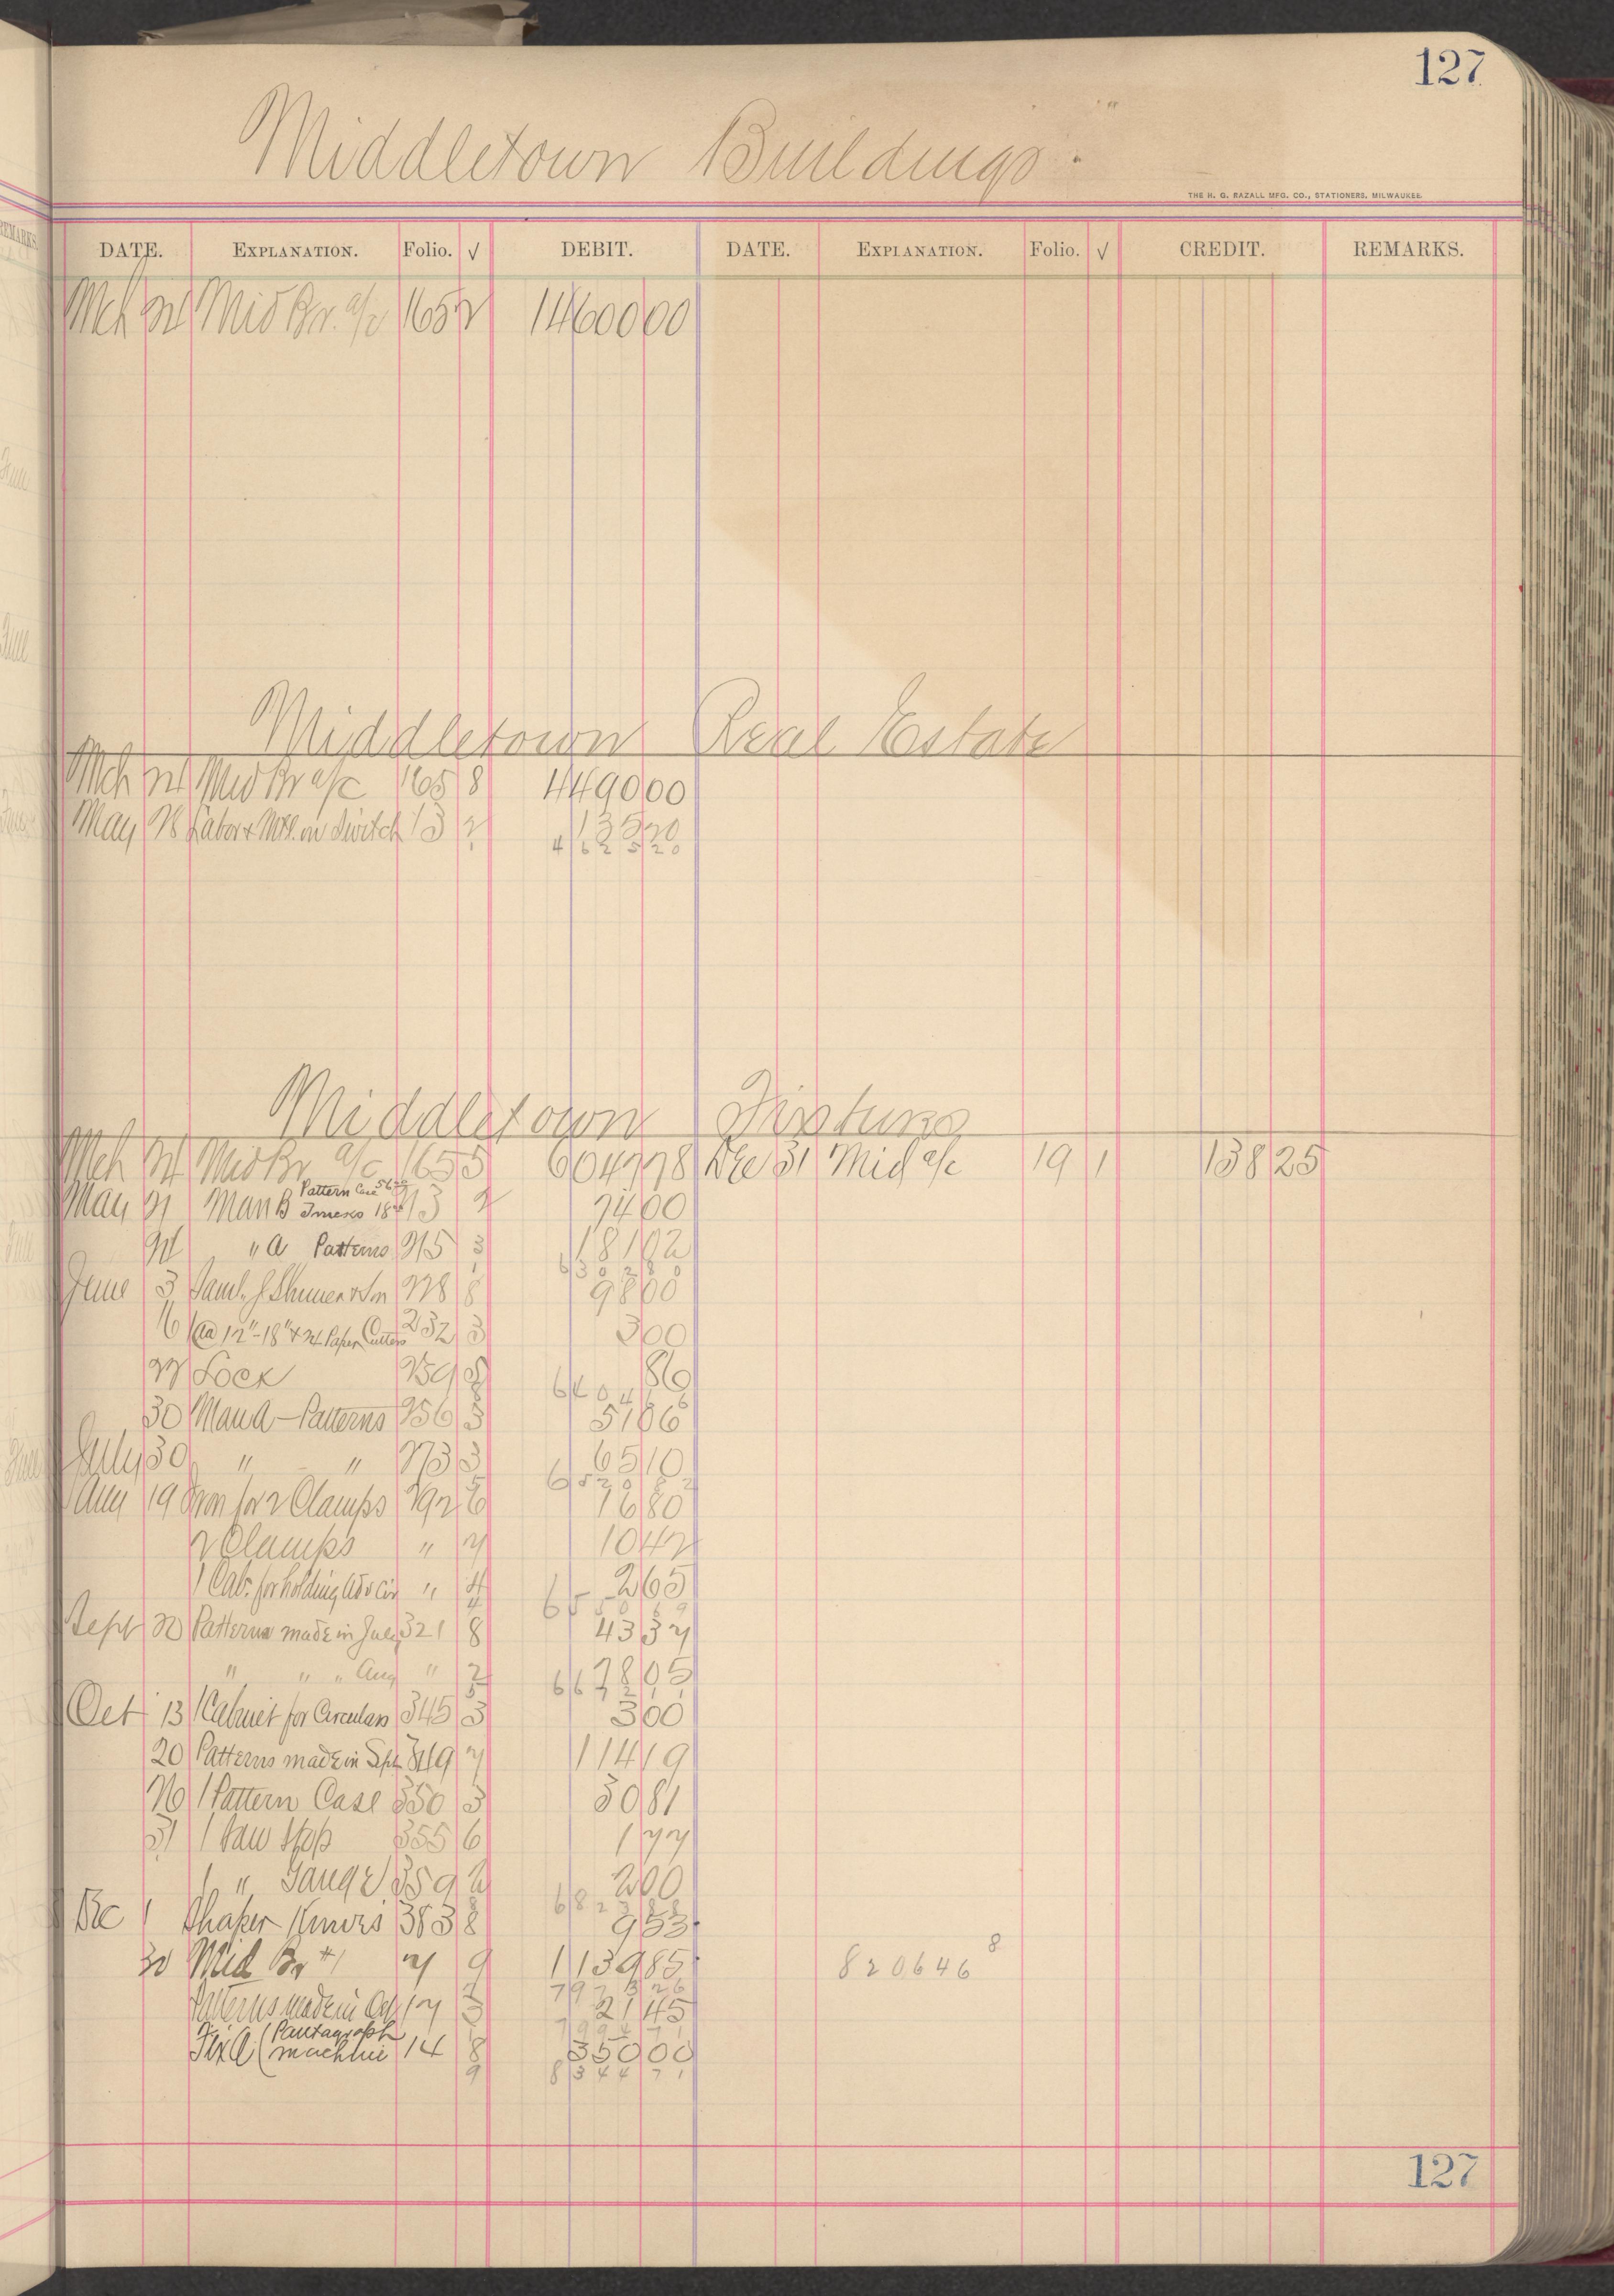 127
Middletown Buildings
THE H. G. RAZALL MFG. CO., STATIONERS, MILWAUKEE.
DATE. EXPLANATION. Folio. √ DEBIT. DATE. EXPLANATION. Folio. √ CREDIT. REMARKS.
Mch 24 Mid Br. a/c 165 2 14600 00
Middletown Real Estate
Mch 24 Mid Br a/c 165 8 4490 00
May 28 Labor & Mtl. on Switch 13 2 135 20
4 6 2 5 20
Middletown Fixtures
Mch 24 Mid Br. a/c 165 5 6047 78 Dec 31 Mid a/c 19 1 138 25
Pattern Case 56
May 21 Man B 18 13 2 74 00
24 " A Patterns 215 3 181 02
6 3 0 2 8 0
June 3 Saml. J Shimer & Son 228 8 98 00
16 12"-18" & 24 Paper Cutters 232 3 3 00
27 Lock 259 8 86
6 4 0 4 6 6
30 Man A - Patterns 256 3 51 06
July 30 " " 273 3 65 10
6 5 2 0 8 2
Aug 19 Iron for 2 Clamps 292 6 16 80
2 Clamps " 7 10 42
1 Cab. for holding Adv Cir " 4 2 65
4 6 5 5 0 6 9
Sept 20 Patterns made in July 321 8 43 37
" " " Aug " 2 78 05
5 6 6 7 2 1 1
Oct 13 1 Cabinet for Circulars 345 3 3 00
20 Patterns made in Sept 349 7 114 19
26 1 Pattern Case 350 3 30 81
31 1 Saw Stop 355 6 1 77
1 " Gauge 359 2 2 00
6 8 2 3 8 8
Dec 1 Shaper Knives 383 8 9 53
30 Mid Br #1 7 9 1139 85 820646 8
7 9 7 3 26
Patterns made in Oct 17 3 21 45
7 9 9 4 7 1
(Pantagraph
Fix A (machine 14 8 350 00
9 8 3 4 4 7 1
127